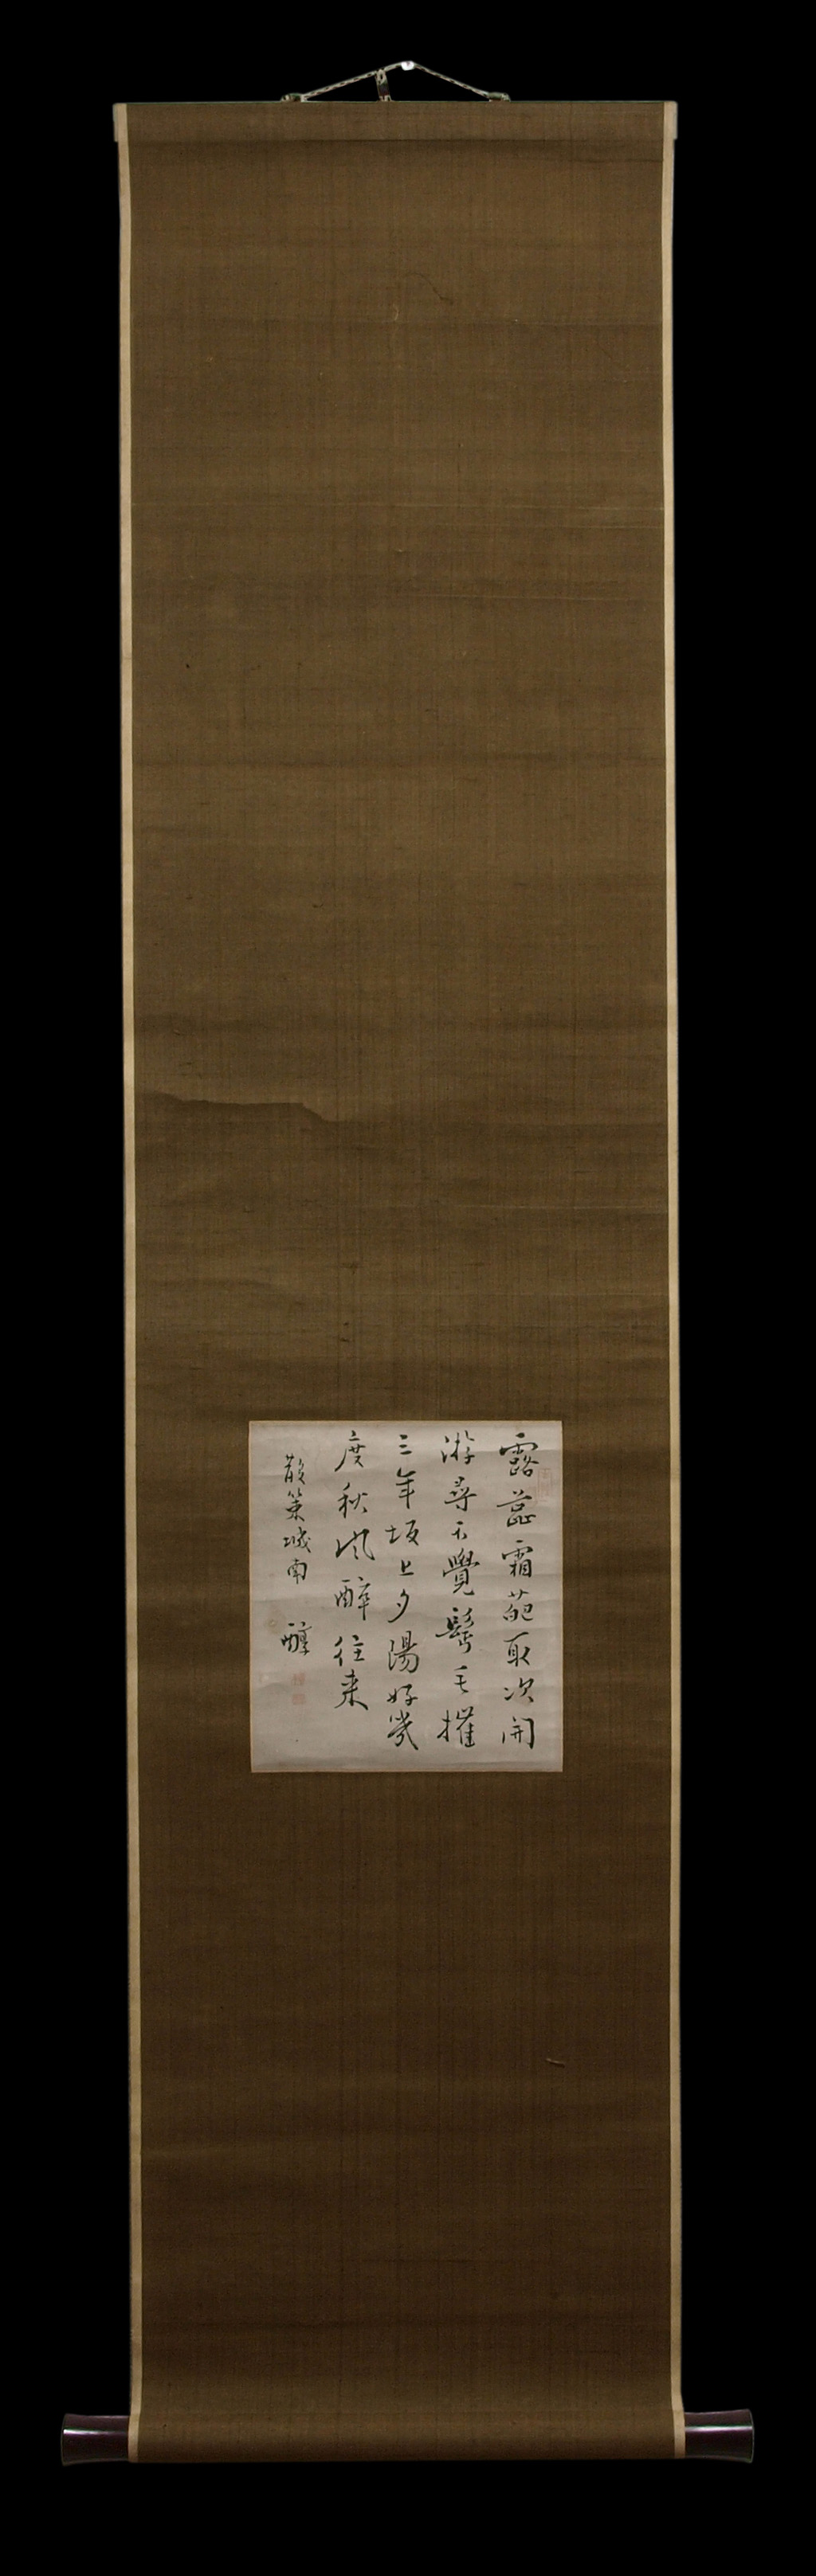 露蕊霜葩取次開
游尋不覺鬢毛摧
三年坂上夕陽好幾
度秋風醉往来
散策城南 醇